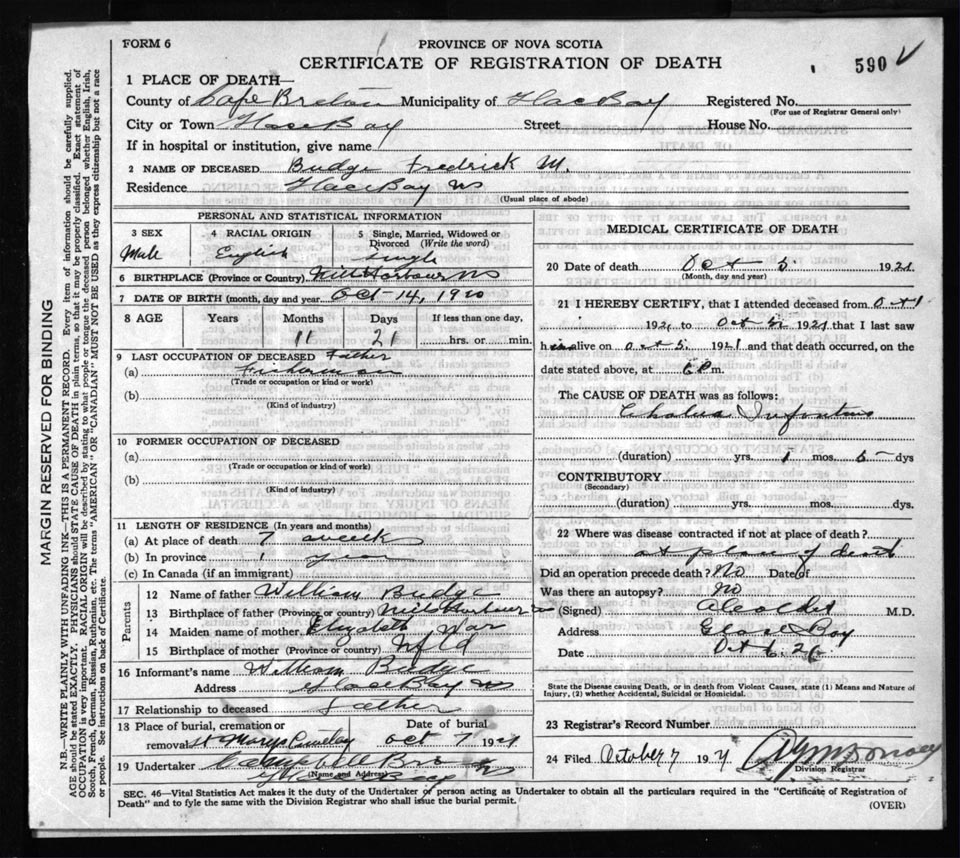 FORM 6
PROVINCE OF NOVA SCOTIA
CERTIFICATE OF REGISTRATION OF DEATH
590
1 PLACE OF DEATH—
County of Cape Breton Municipality of Glace Bay Registered No.
(For use of Registrar General only)
City or Town Glace Bay Street House No.
If in hospital or institution, give name
2 NAME OF DECEASED Budge Fredrick M.
Residence Glace Bay NS
(Usual place of abode)
PERSONAL AND STATISTICAL INFORMATION
3 SEX
Male
4 RACIAL ORIGIN
English
5 Single, Married, Widowed or Divorced (Write the word)
Single
6 BIRTHPLACE (Province or Country) Neil's Harbour NS
7 DATE OF BIRTH (month, day and year) Oct 14, 1920
8 AGE Years Months Days If less than one day,
11 21 hrs. or min.
9 LAST OCCUPATION OF DECEASED Father
(a) Fisherman
(Trade or occupation or kind or work)
(b)
(Kind of industry)
10 FORMER OCCUPATION OF DECEASED
(a)
(Trade or occupation or kind of work)
(b)
(Kind of industry)
11 LENGTH OF RESIDENCE (In years and months)
(a) At place of death 7 weeks
(b) In province 1 year
(c) In Canada (if an immigrant)
Parents
12 Name of father William Budge
13 Birthplace of father (Province or country)
14 Maiden name of mother Elizabeth
15 Birthplace of mother (Province or country) Nfld
16 Informant's name William Budge
Address Glace Bay NS
17 Relationship to deceased Father
18 Place of burial, cremation or Date of burial
removal St Marys Oct 7 1921
19 Undertaker
(Name and Address)
MEDICAL CERTIFICATE OF DEATH
20 Date of death Oct 5 1921
(Month, day and year)
21 I HEREBY CERTIFY, that I attended deceased from Oct 1
1921 to Oct 1921 that I last saw
him alive on Oct 5 1921 and that death occurred, on the
date stated above, at 6 P m.
The CAUSE OF DEATH was as follows:
Cholera Infantum
(duration) yrs. 1 mos. 5 dys
CONTRIBUTORY
(Secondary)
(duration) yrs. mos. dys.
22 Where was disease contracted if not at place of death?
at place of death
Did an operation precede death? No Date of
Was there an autopsy? no
(Signed) M.D.
Address Glace Bay
Date Oct 6
State the Disease causing Death, or in death from Violent Causes, state (1) Means and Nature of
Injury, (2) whether Accidental, Suicidal or Homicidal.
23 Registrar's Record Number
24 Filed October 7 1921
Division Registrar
SEC. 46—Vital Statistics Act makes it the duty of the Undertaker or person acting as Undertaker to obtain all the particulars required in the "Certificate of Registration of
Death" and to fyle the same with the Division Registrar who shall issue the burial permit.
(OVER)
MARGIN RESERVED FOR BINDING
N.B.—WRITE PLAINLY WITH UNFADING INK—THIS IS A PERMANENT RECORD. Every item of information should be carefully supplied.
AGE should be stated EXACTLY. PHYSICIANS should STATE CAUSE OF DEATH in plain terms, so that it may be properly classified. Exact statement of
OCCUPATION is very important. RACIAL ORIGIN will be described by stating to what people or tongue the deceased person belonged whether English, Irish,
Scotch, French, German, Russian, Ruthenian, etc. The terms "AMERICAN" OR "CANADIAN" MUST NOT BE USED as they express citizenship but not a race
or people. See instructions on back of Certificate.